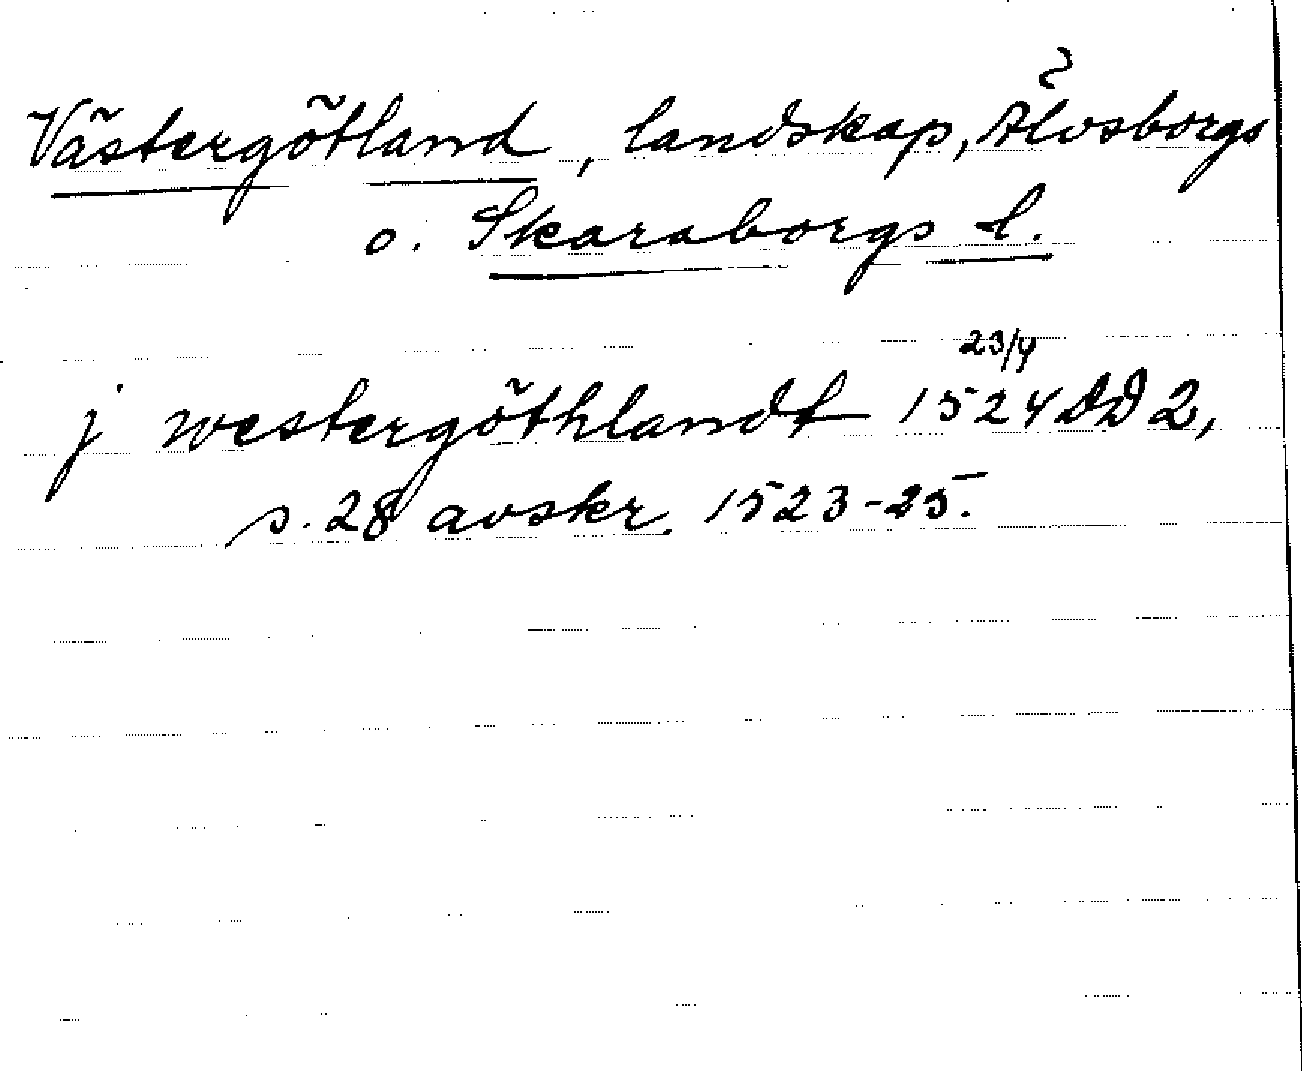 Västergötland, landskap, Älvsborgs
o. Skaraborgs l.
j westergöthlandt 23/4 1524 DD 2,
s. 28 avskr. 1523-25.